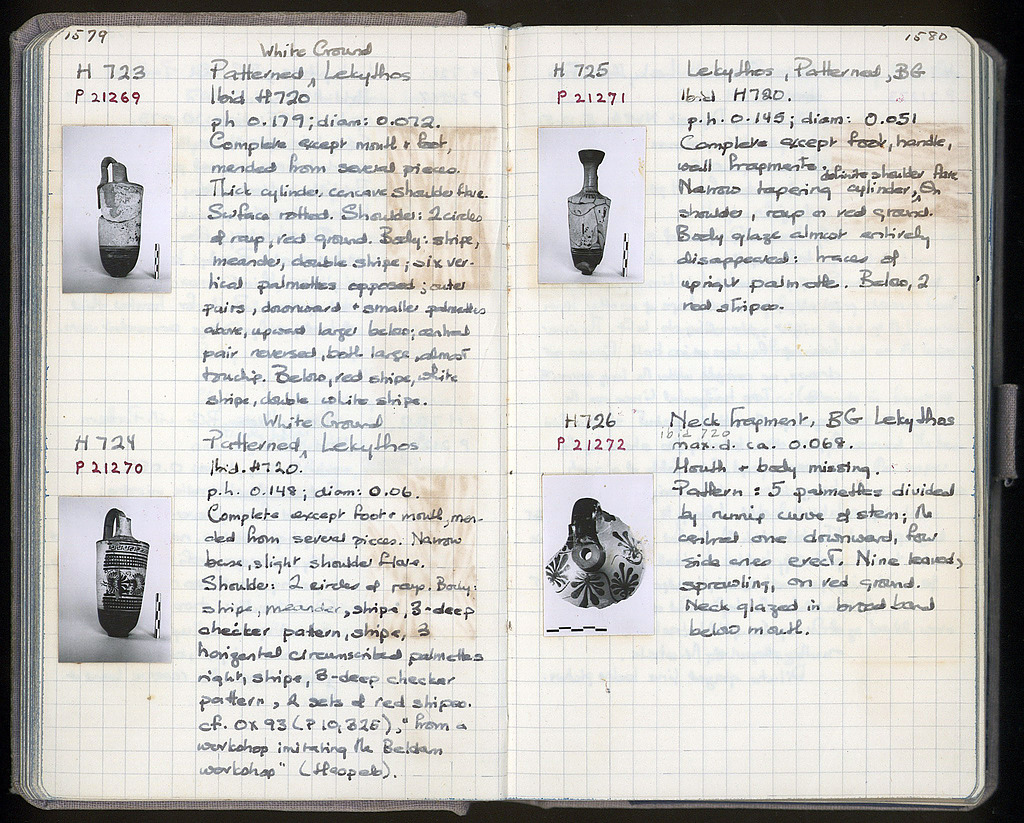 1579
White Ground
H 723 Patterned ^ Lekythos
P 21269 Ibid H720
ph 0.179; diam: 0.072.
Complete except mouth + foot,
mended from several pieces.
Thick cylinder, concave shoulder flare.
Surface rotted. Shoulder: 2 circles
of rays, red ground. Body: stripe,
meander, double stripe; six ver-
tical palmettes opposed; outer
pairs, downward + smaller palmettes
above, upward larger below; central
pair reversed, both large, almost
touching. Below, red stripe, white
stripe, double white stripe.
White Ground
H 724 Patterned ^ Lekythos
P 21270 Ibid. H720.
p.h. 0.148; diam: 0.06.
Complete except foot + mouth, men-
ded from several pieces. Narrow
base, slight shoulder flare.
Shoulder: 2 circles of rays. Body:
stripe, meander, stripe, 3-deep
checker pattern, stripe, 3
horizontal circumscribed palmettes
right, stripe, 3-deep checker
pattern, 2 sets of red stripes.
cf. OX 93 (P 10,325), "from a
workshop imitating the Beldam
workshop" (Haspels).
1580
H 725 Lekythos, Patterned, BG
P 21271 Ibid H720.
p.h. 0.145; diam: 0.051
Complete except foot, handle,
wall fragments.
definite shoulder flare
Narrow tapering cylinder, ^ On
shoulder, rays on red ground.
Body glaze almost entirely
disappeared: traces of
upright palmette. Below, 2
red stripes.
H726 Neck Fragment, BG Lekythos
ibid 720
P 21272 max. d. ca. 0.068.
Mouth + body missing.
Pattern: 5 palmettes divided
by running curve of stem; the
central one downward, four
side ones erect. Nine leaves,
sprawling, on red ground.
Neck glazed in broad band
below mouth.